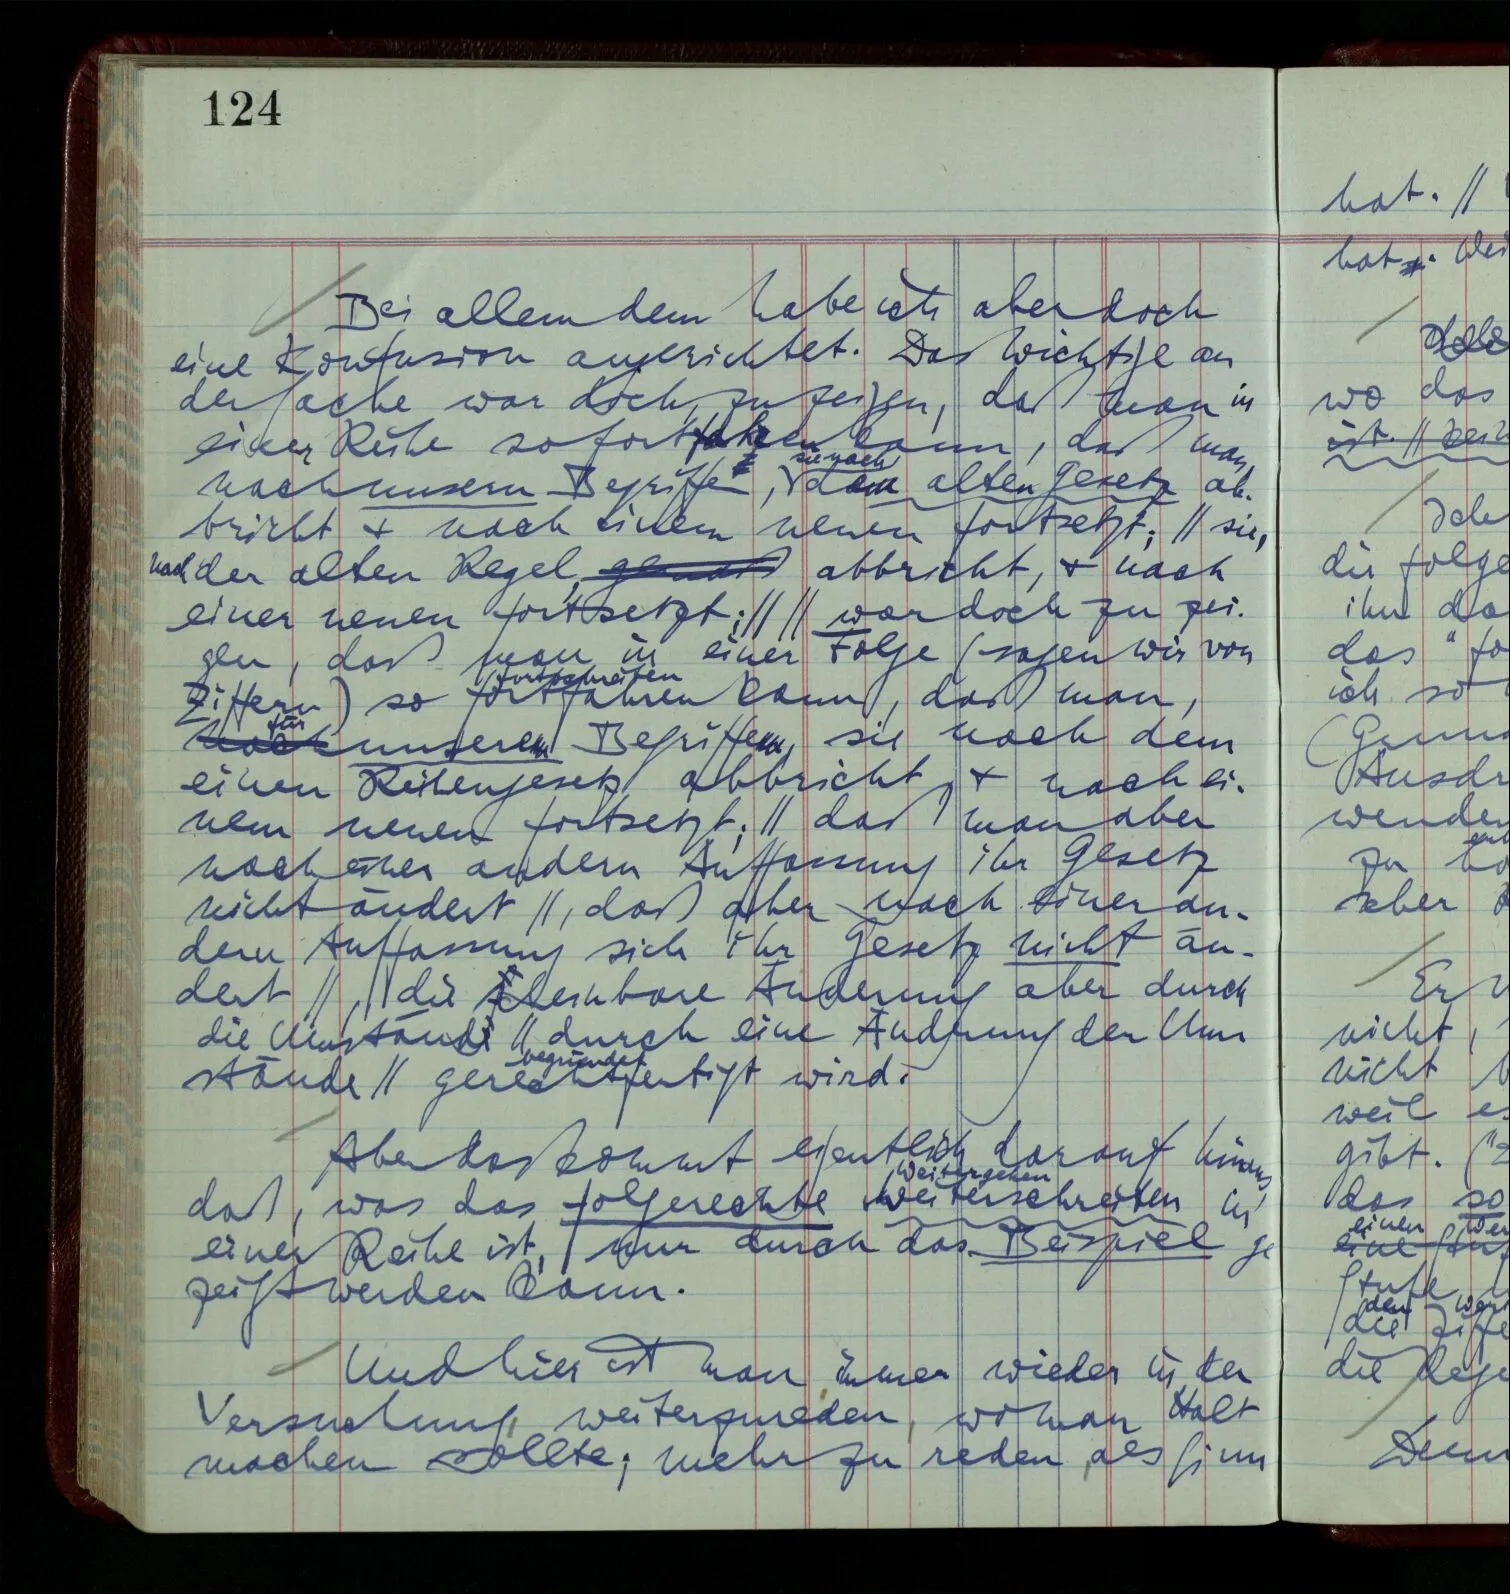 124
Bei allem dem habe ich aber doch
eine Konfusion angerichtet. Das Wichtige an
der Sache war doch, zu zeigen, daß man in
einer Reihe so fortfahren kann, daß man,
nach unsern Begriffen, sie nach dem alten Gesetz ab-
bricht & nach einem neuen fortsetzt; // sie,
nach der alten Regel, gemäß abbricht, & nach
einer neuen fortsetzt; // // war doch zu zei-
gen, daß man in einer Folge (sagen wir von
fortschreiten
Ziffern) so fortfahren kann, daß man,
für
nach unseren Begriffen, sie nach dem
einen Reihengesetz abbricht, & nach ei-
nem neuen fortsetzt; // daß man aber
nach einer andern Auffassung ihr Gesetz
nicht ändert //, daß aber nach einer an-
dern Auffassung sich ihr Gesetz nicht än-
dert //, // die scheinbare Änderung aber durch
die Umstände // durch eine Änderung der Um
begründet
stände // gerechtfertigt wird.
Aber das kommt eigentlich darauf hinaus,
Weitergehen
daß, was das folgerechte Weiterschreiten in
einer Reihe ist, nur durch das Beispiel ge
zeigt werden kann.
Und hier ist man immer wieder in der
Versuchung, weiterzureden, wo man Halt
machen sollte; mehr zu reden, als Sinn
hat. //
hat.
wo das
ist. //
Ich
die folge
ihm da
das "fo
ich so
(
Ausdr
wende
zu
aber
Er
nicht,
nicht
weil e
gibt. (
das so
einen
eine
Stufe
den
die Ziffe
die Rege
Denn